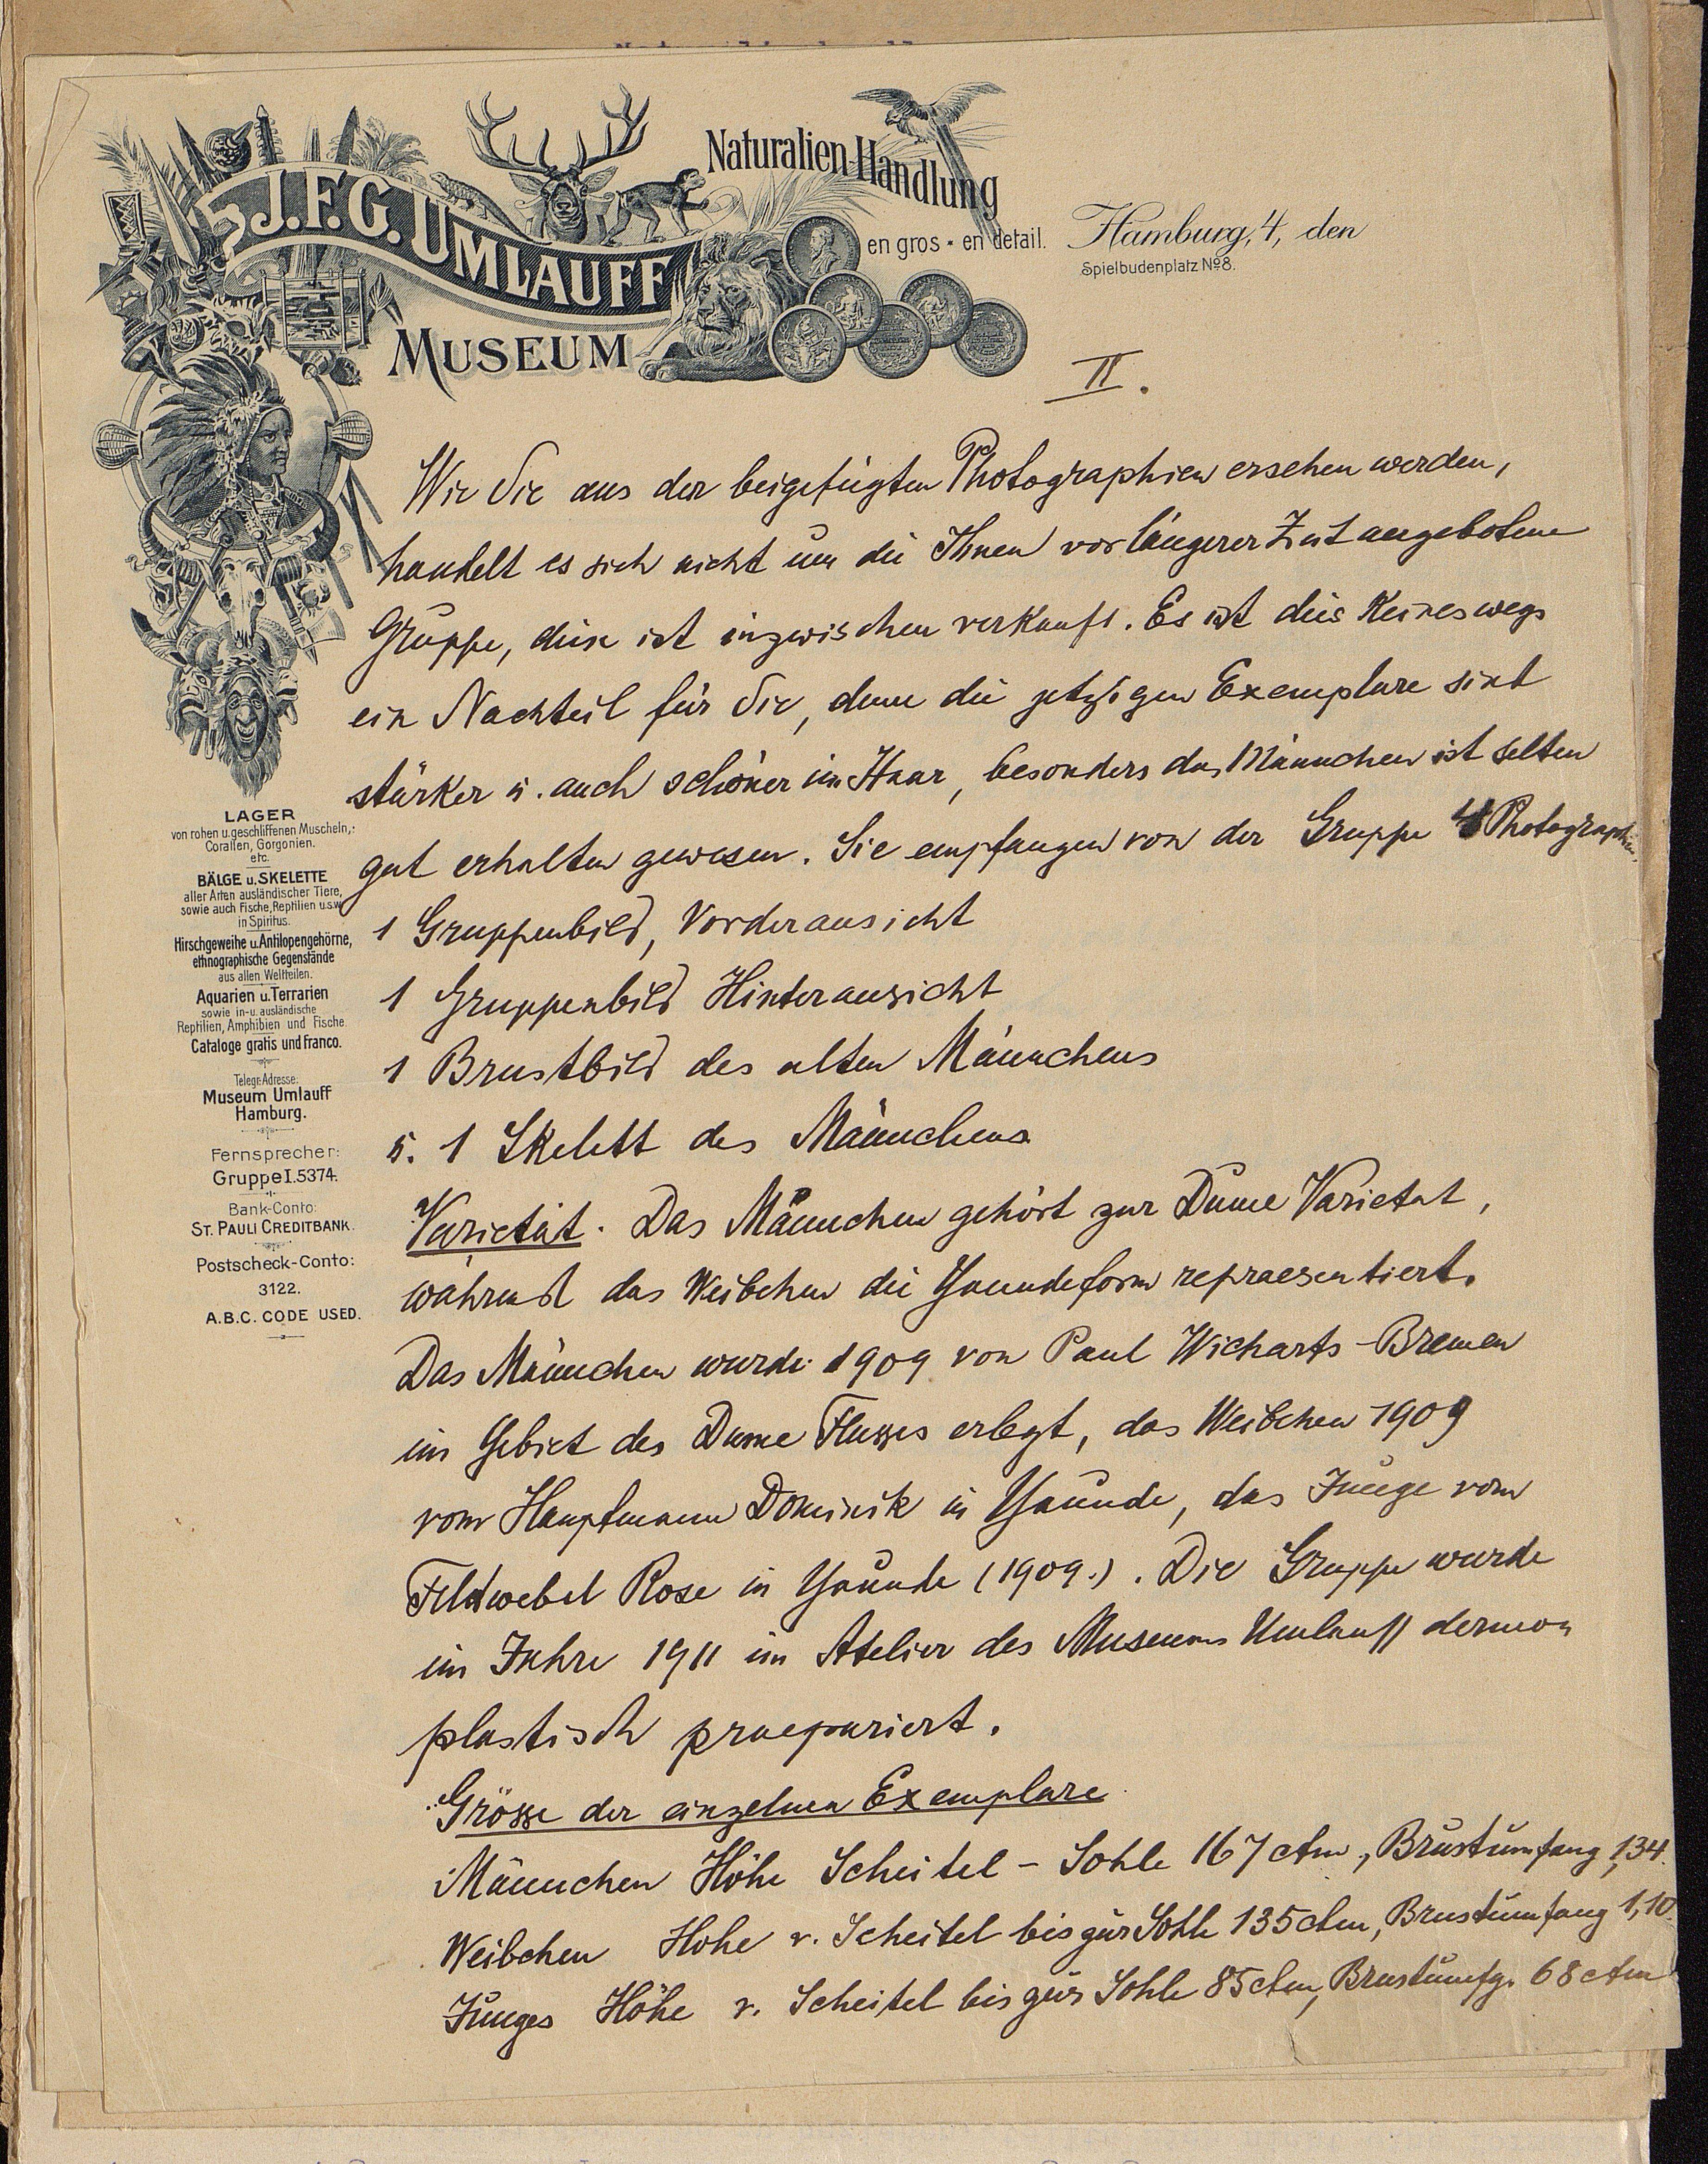 J.F.G. UMLAUFF
MUSEUM
Naturalien-Handlung
en gros - en detail.
Hamburg, 4, den
Spielbudenplatz No 8.
II.
Wie Sie aus den beigefügten Photographien ersehen werden,
handelt es sich nicht um die Ihnen vor längerer Zeit angebotene
Gruppe, diese ist inzwischen verkauft. Es ist dies keineswegs
ein Nachteil für Sie, denn die jetzigen Exemplare sind
stärker u. auch schöner im Haar, besonders das Männchen ist selten
gut erhalten gewesen. Sie empfangen von der Gruppe 4 Photographien.
1 Gruppenbild, Vorderansicht
1 Gruppenbild Hinteransicht
1 Brustbild des alten Männchens
u. 1 Skelett des Männchens
Varietät. Das Männchen gehört zur Dume Varietat,
wahrend das Weibchen die Yaundeform repraesentiert.
Das Männchen wurde 1909 von Paul Wicharts-Bremen
im Gebiet des Dume Flusses erlegt, das Weibchen 1909
vom Hauptmann Dominik in Yaunde, das Junge vom
Feldwebel Rose in Yaunde (1909.). Die Gruppe wurde
im Jahre 1911 im Atelier des Museums Umlauff dermo
plastisch praepariert.
Grösse der einzelnen Exemplare
Männchen Höhe Scheitel - Sohle 167 ctm, Brustumfang 1,34.
Weibchen Hohe v. Scheitel bis zur Sohle 135 ctm, Brustumfang 1,10.
Junges Höhe v. Scheitel bis zur Sohle 85 ctm, Brustumfg. 68 ctm
LAGER
von rohen u. geschliffenen Muscheln,
Corallen, Gorgonien.
etc.
BÄLGE u. SKELETTE
aller Arten ausländischer Tiere,
sowie auch Fische, Reptilien u.s.w.
in Spiritus.
Hirschgeweihe u. Antilopengehörne,
ethnographische Gegenstände
aus allen Weltteilen.
Aquarien u. Terrarien
sowie in- u. ausländische
Reptilien, Amphibien und Fische.
Cataloge gratis und franco.
Telegr. Adresse:
Museum Umlauff
Hamburg.
Fernsprecher:
Gruppe I. 5374.
Bank-Conto:
ST. PAULI CREDITBANK.
Postscheck-Conto:
3122.
A.B.C. CODE USED.